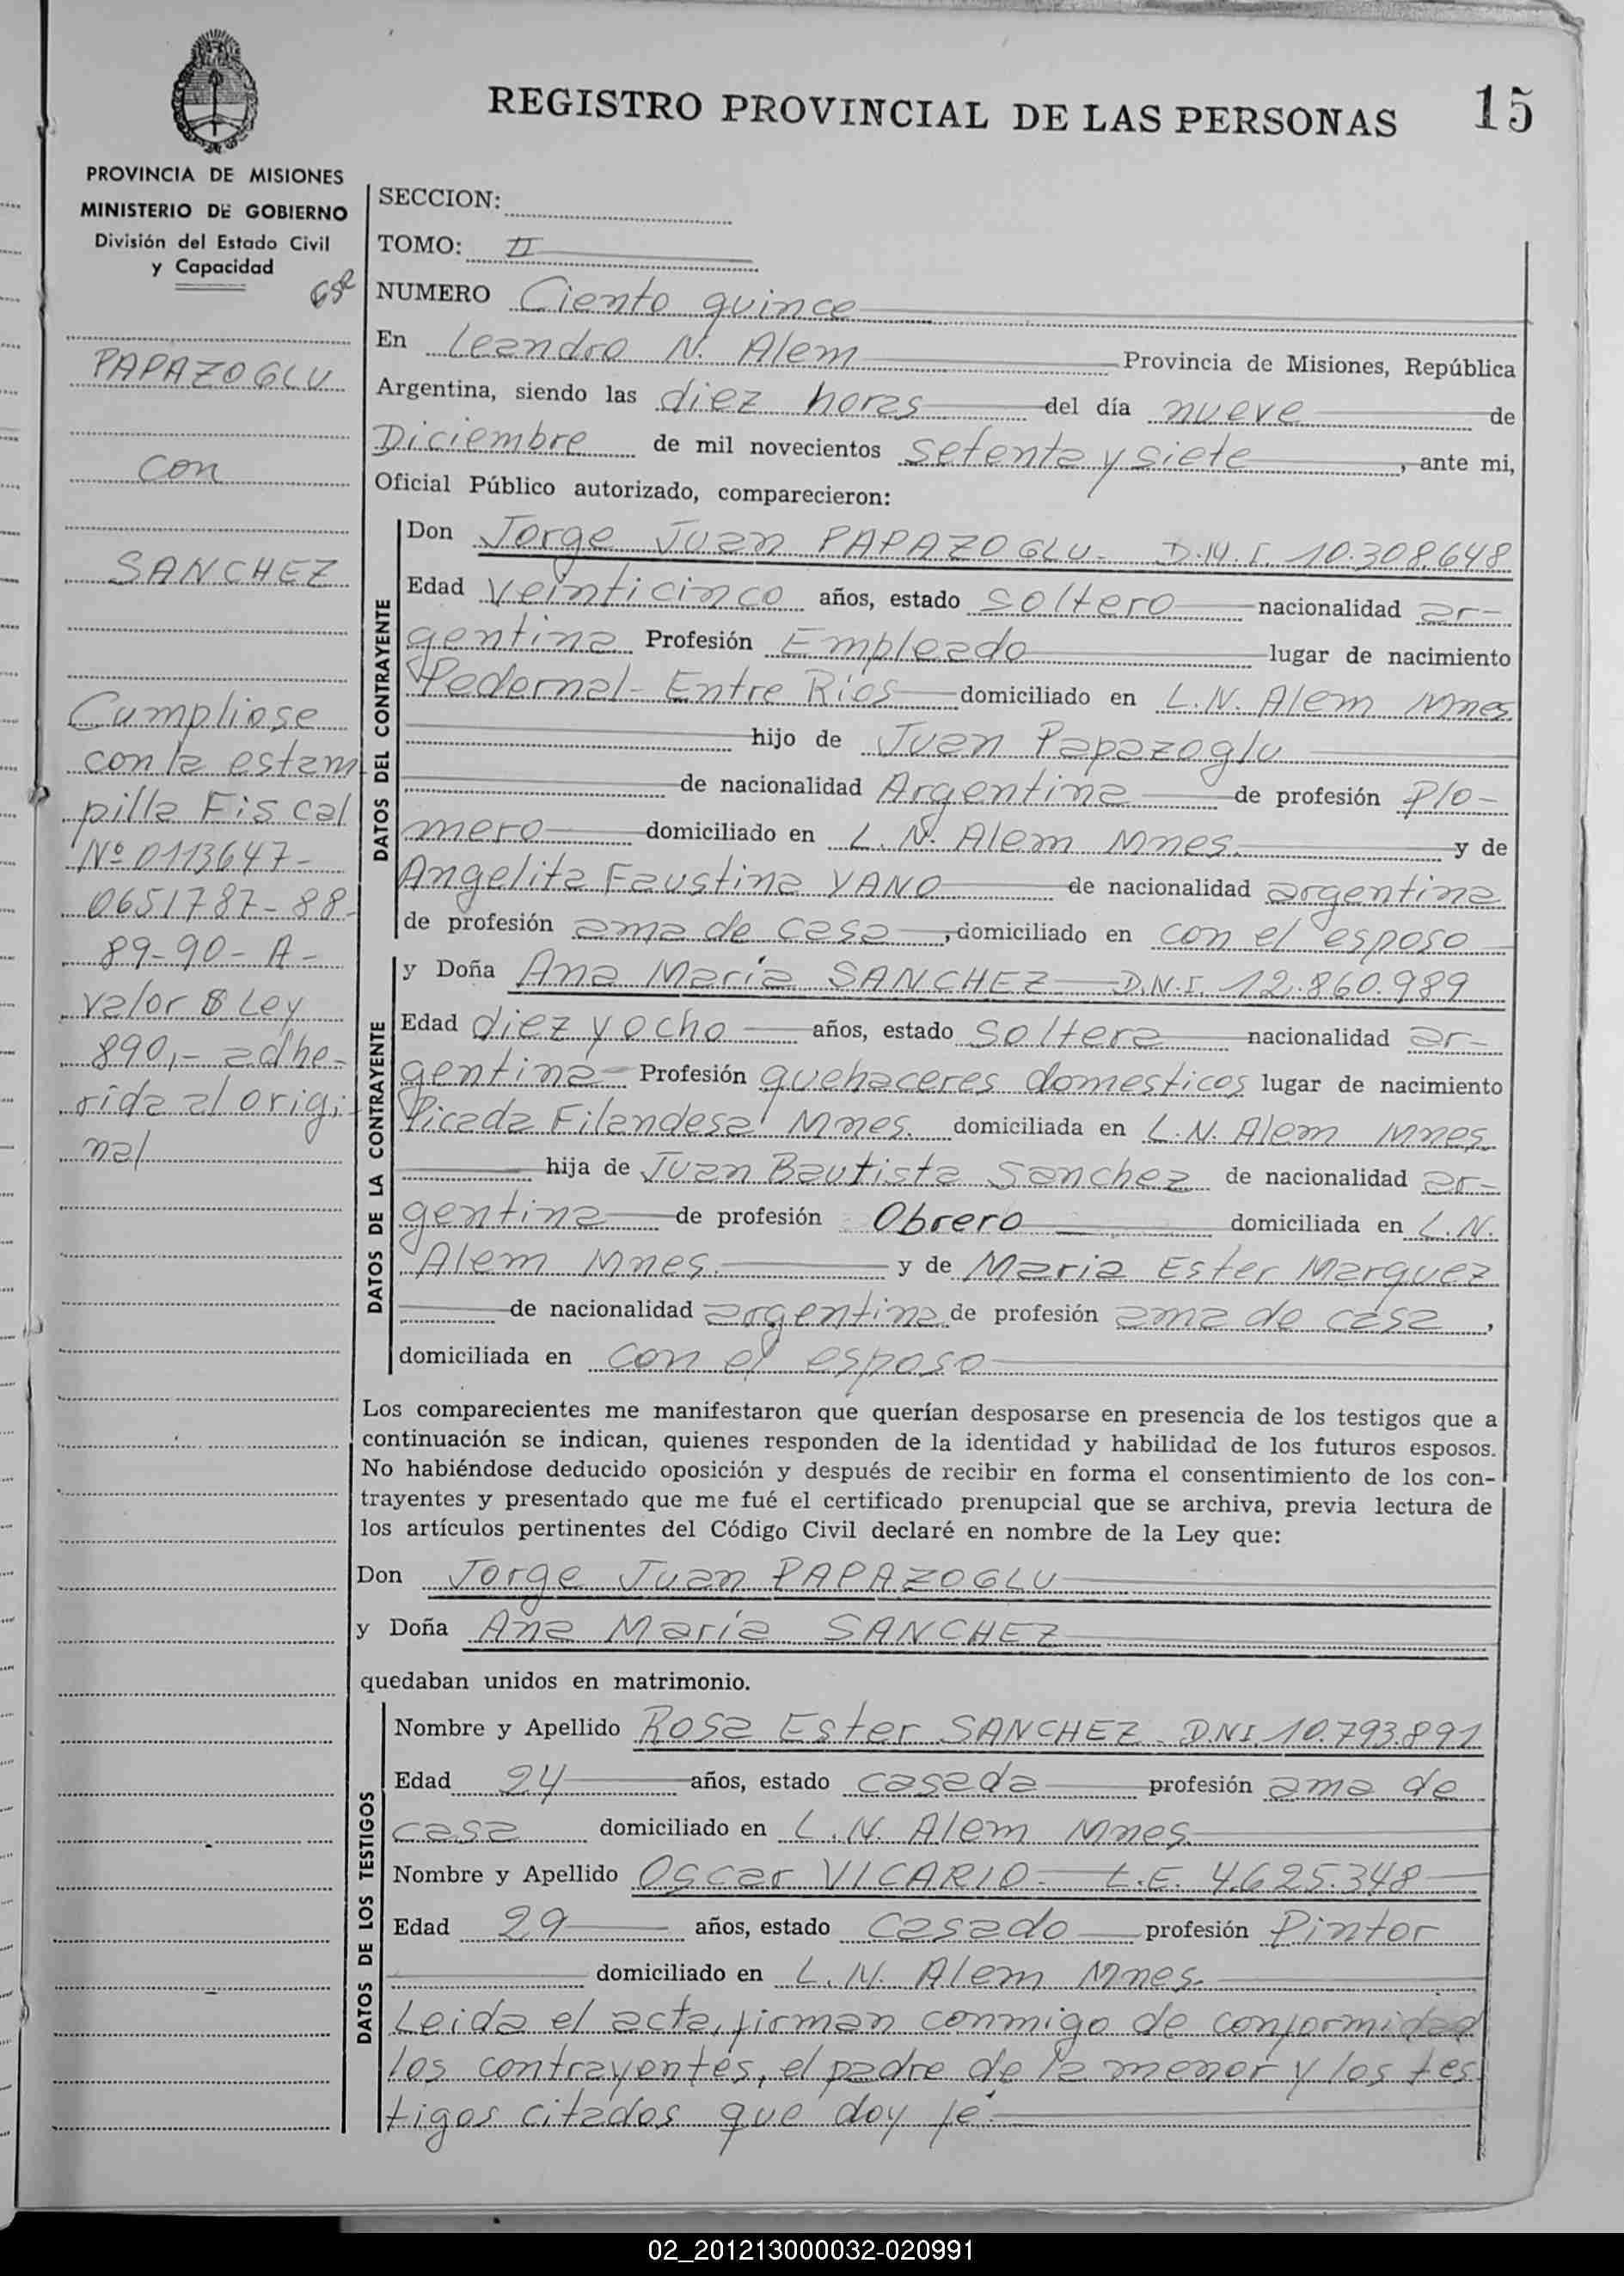 REGISTRO PROVINCIAL DE LAS PERSONAS 15
PROVINCIA DE MISIONES
MINISTERIO DE GOBIERNO
División del Estado Civil
y Capacidad
PAPAZOGLU
con
SANCHEZ
Cumpliose
con la estam
pilla Fiscal
Nº 0113647-
0651787-88-
89-90-A-
valor $ Ley
890,- adhe-
rida al origi-
nal
SECCION:
TOMO: II
NUMERO Ciento quince
En Leandro N. Alem Provincia de Misiones, República
Argentina, siendo las diez horas del día nueve de
Diciembre de mil novecientos setenta y siete, ante mi,
Oficial Público autorizado, comparecieron:
DATOS DEL CONTRAYENTE
Don Jorge Juan PAPAZOGLU- D.N.I. 10.308.648
Edad veinticinco años, estado soltero nacionalidad ar-
gentina Profesión Empleado lugar de nacimiento
Pedernal- Entre Rios domiciliado en L.N. Alem Mnes
hijo de Juan Papazoglu
de nacionalidad Argentina de profesión plo-
mero domiciliado en L. N. Alem Mnes. y de
Angelita Faustina YANO de nacionalidad argentina
de profesión ama de casa, domiciliado en con el esposo
DATOS DE LA CONTRAYENTE
y Doña Ana María SANCHEZ D.N.I. 12.860.989
Edad diez y ocho años, estado soltera nacionalidad ar-
gentina Profesión quehaceres domesticos lugar de nacimiento
Picada Filandesa Mnes. domiciliada en L.N. Alem Mnes
hija de Juan Bautista Sanchez de nacionalidad ar-
gentina de profesión Obrero domiciliada en L.N.
Alem Mnes. y de Maria Ester Marquez
de nacionalidad argentina de profesión ama de casa,
domiciliada en con el esposo
Los comparecientes me manifestaron que querían desposarse en presencia de los testigos que a
continuación se indican, quienes responden de la identidad y habilidad de los futuros esposos.
No habiéndose deducido oposición y después de recibir en forma el consentimiento de los con-
trayentes y presentado que me fué el certificado prenupcial que se archiva, previa lectura de
los artículos pertinentes del Código Civil declaré en nombre de la Ley que:
Don Jorge Juan PAPAZOGLU
y Doña Ana María SANCHEZ
quedaban unidos en matrimonio.
DATOS DE LOS TESTIGOS
Nombre y Apellido Rosa Ester SANCHEZ. D.N.I. 10.793.891
Edad 24 años, estado casada profesión ama de
casa domiciliado en L.N. Alem Mnes.
Nombre y Apellido Oscar VICARIO- L.E. 4.625.348
Edad 29 años, estado casado profesión Pintor
domiciliado en L. N. Alem Mnes.
Leida el acta, firman conmigo de conformidad
los contrayentes, el padre de la menor y los tes
tigos citados que doy fé.
02_201213000032-020991